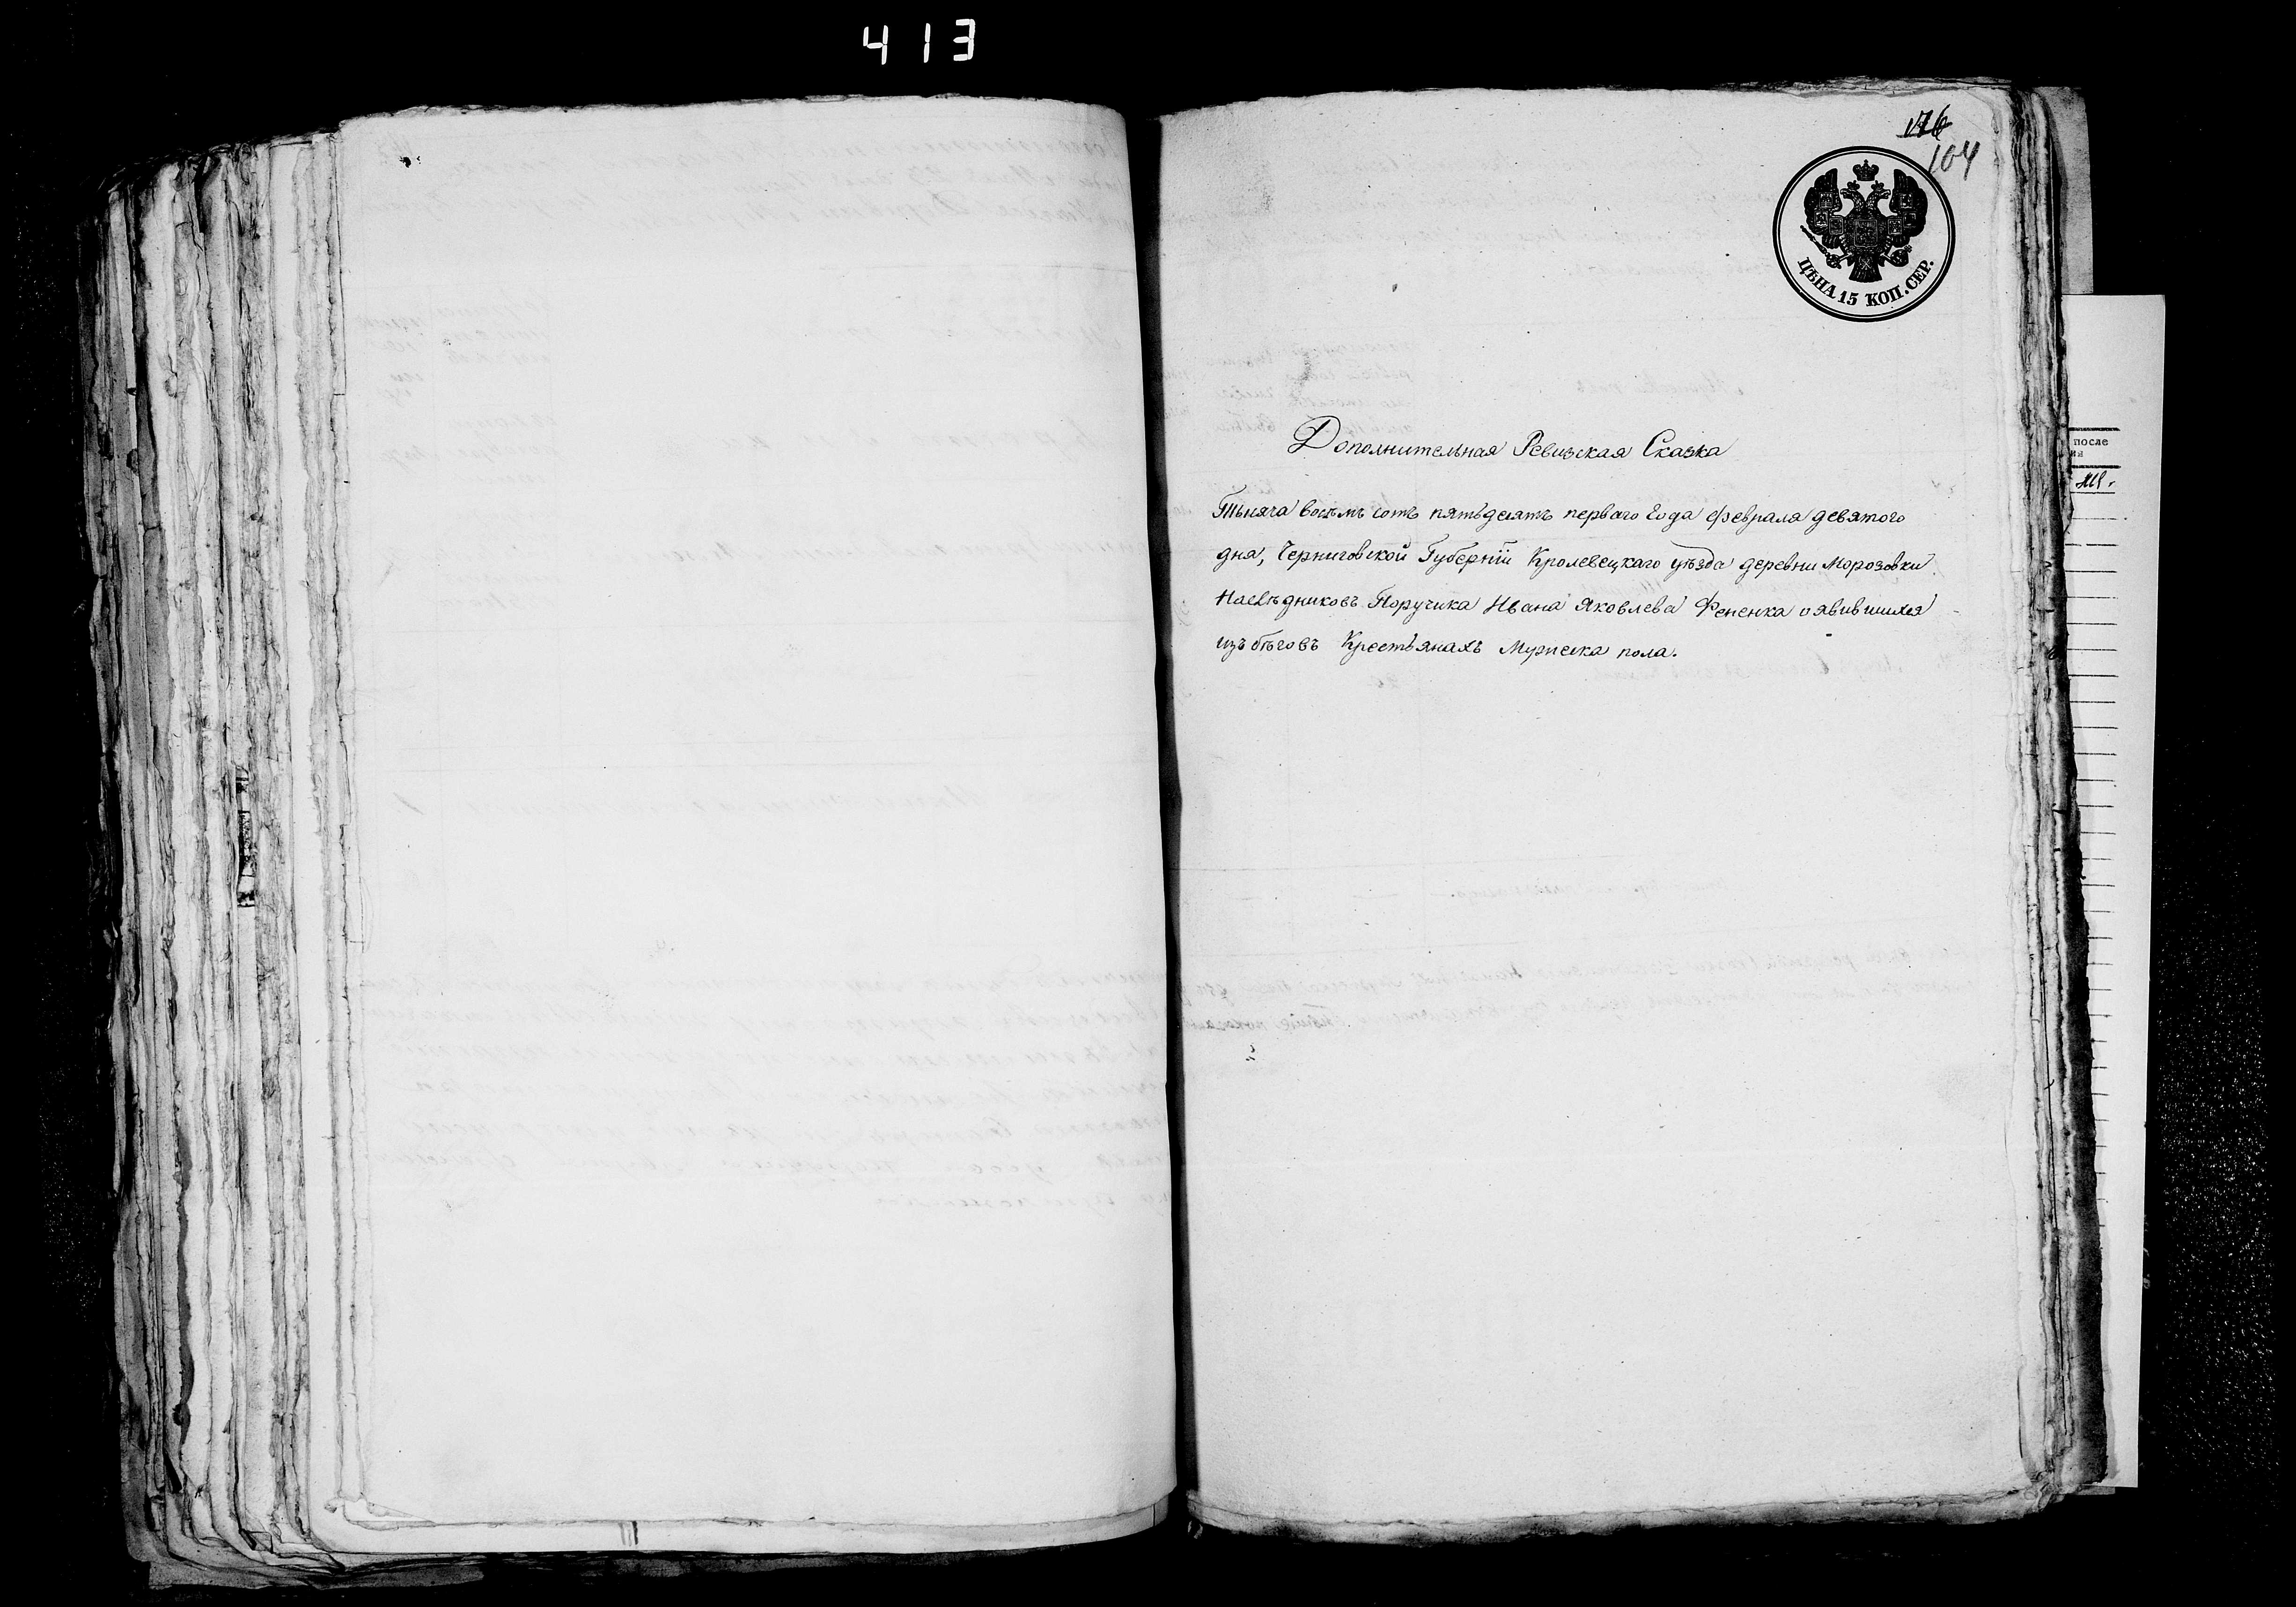 413
176
104
ЦѢНА 15 КОП. СЕР.
Дополнительная Ревизская Сказка
Тысяча восемь сотъ пятьдесятъ перваго года февраля девятого
дня, Черниговской Губерніи Кролевецкаго уѣзда деревни Морозовки
Наслѣдниковъ Поручика Ивана Яковлева Фененка о явившихся
изъ бѣговъ Крестьянахъ Мужеска пола.
после
ия